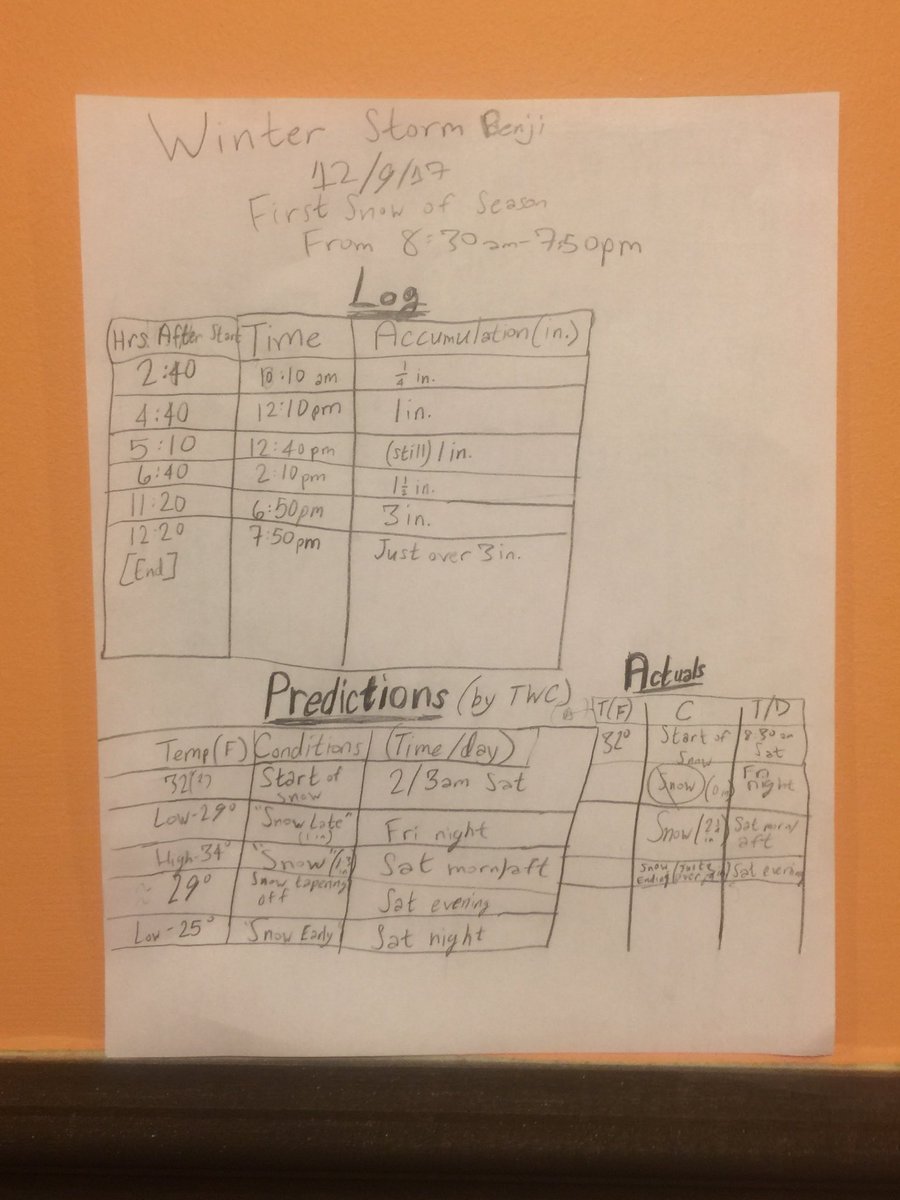 Winter Storm Benji
12/9/17
First Snow of Season
From 8:30am-7:50pm
Log
Hrs. After Start Time Accumulation (in.)
2:40 10:10 am 1/4 in.
4:40 12:10pm 1in.
5:10 12:40pm (still) 1in.
6:40 2:10pm 1 1/2 in.
11:20 6:50pm 3 in.
12:20 7:50pm Just over 3 in.
[End]
Predictions (by TWC)
Temp(F) Conditions (Time/day)
32(?) Start of Snow 2/3am Sat
Low-29° "Snow Late" (1 in) Fri night
High-34° "Snow" Sat morn/aft
~ 29° Snow tapering off Sat evening
Low-25° "Snow Early" Sat night
Actuals
T(F) C T/D
32° Start of Snow 8:30am Sat
Snow (0 in) Fri night
Snow Sat morn/aft
Snow Ending Sat evening